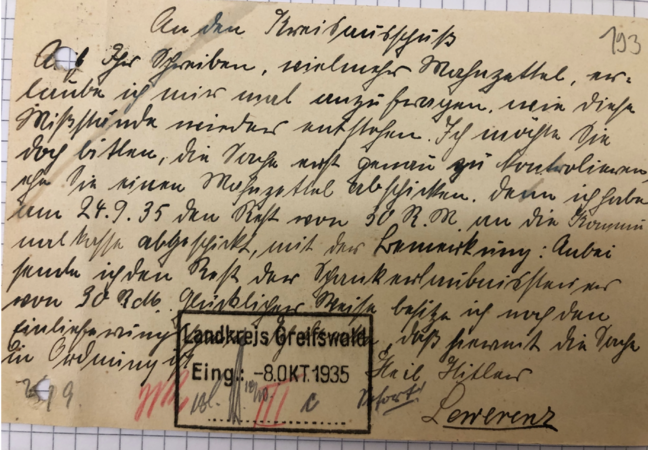 An den Kreisausschuß
193
Auf Ihr Schreiben, vielmehr Mahnzettel, er-
laube ich mir mal anzufragen, wie diese
Mißstände wieder entstehen. Ich möchte Sie
doch bitten, die Sache erst genau zu kontrollieren,
ehe Sie einen Mahnzettel abschicken. Denn ich habe
am 24.9.35 den Rest von 30 R.M. an die Kommu
nalkasse abgeschickt, mit der Bemerkung: Anbei
sende ich den Rest der Schankerlaubnissteuer
von 30 Rdb. Glücklicher Weise besitze ich noch den
Einlieferung
daß hiermit die Sache
in Ordnung ist
Landkreis Greifswald
Eing.: -8.OKT.1935
III c
Heil Hitler
Lewerenz